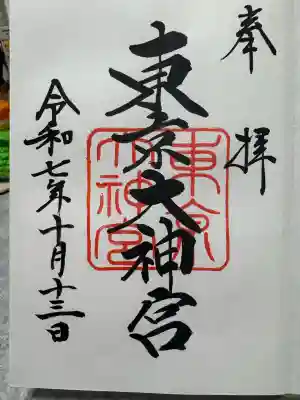 奉拝
東京大神宮
東京大神宮
令和七年十月十三日